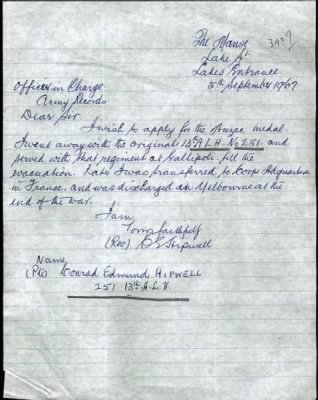 The Manse
Lake St
Lakes Entrance
5th September 1967
Officer in Charge
Army Records
Dear Sir
I wish to apply for the Anzac medal.
I went away with the original 13th A L H No 251. and
served with that regiment at Gallipoli till the
evacuation. Later I was transferred to Corps Headquarters
in France, and was discharged in Melbourne at the
end of the war.
I am
Yours faithfully
(Rev) C E Hipwell
Name
(Pte) Conrad Edmund HIPWELL
251 13th A.L.H.